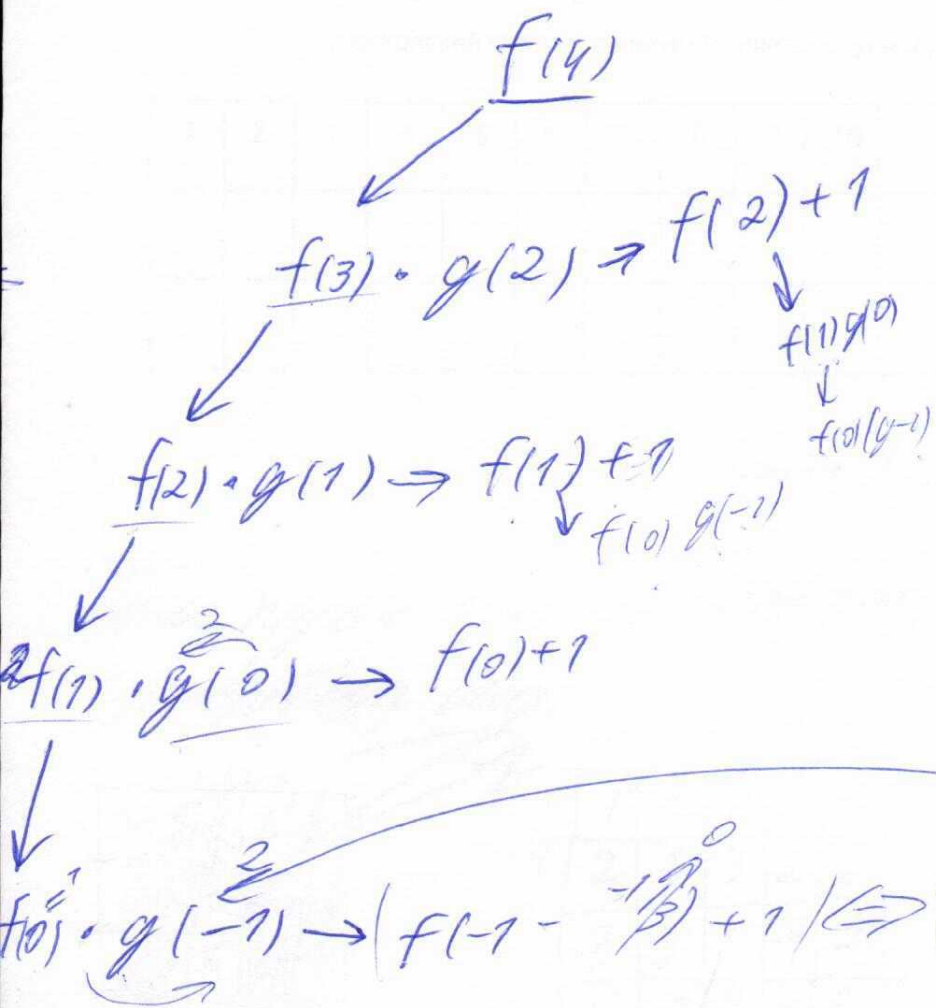 f(4)
f(3) · g(2) → f(2) + 1
f(1) g(0)
f(0) (g-1)
f(2) · g(1) → f(1) + 1
f(0) g(-1)
2
2f(1) · g(0) → f(0) + 1
1 2 0
f(0) · g(-1) → ( f(-1 - + 1 ) ⇔